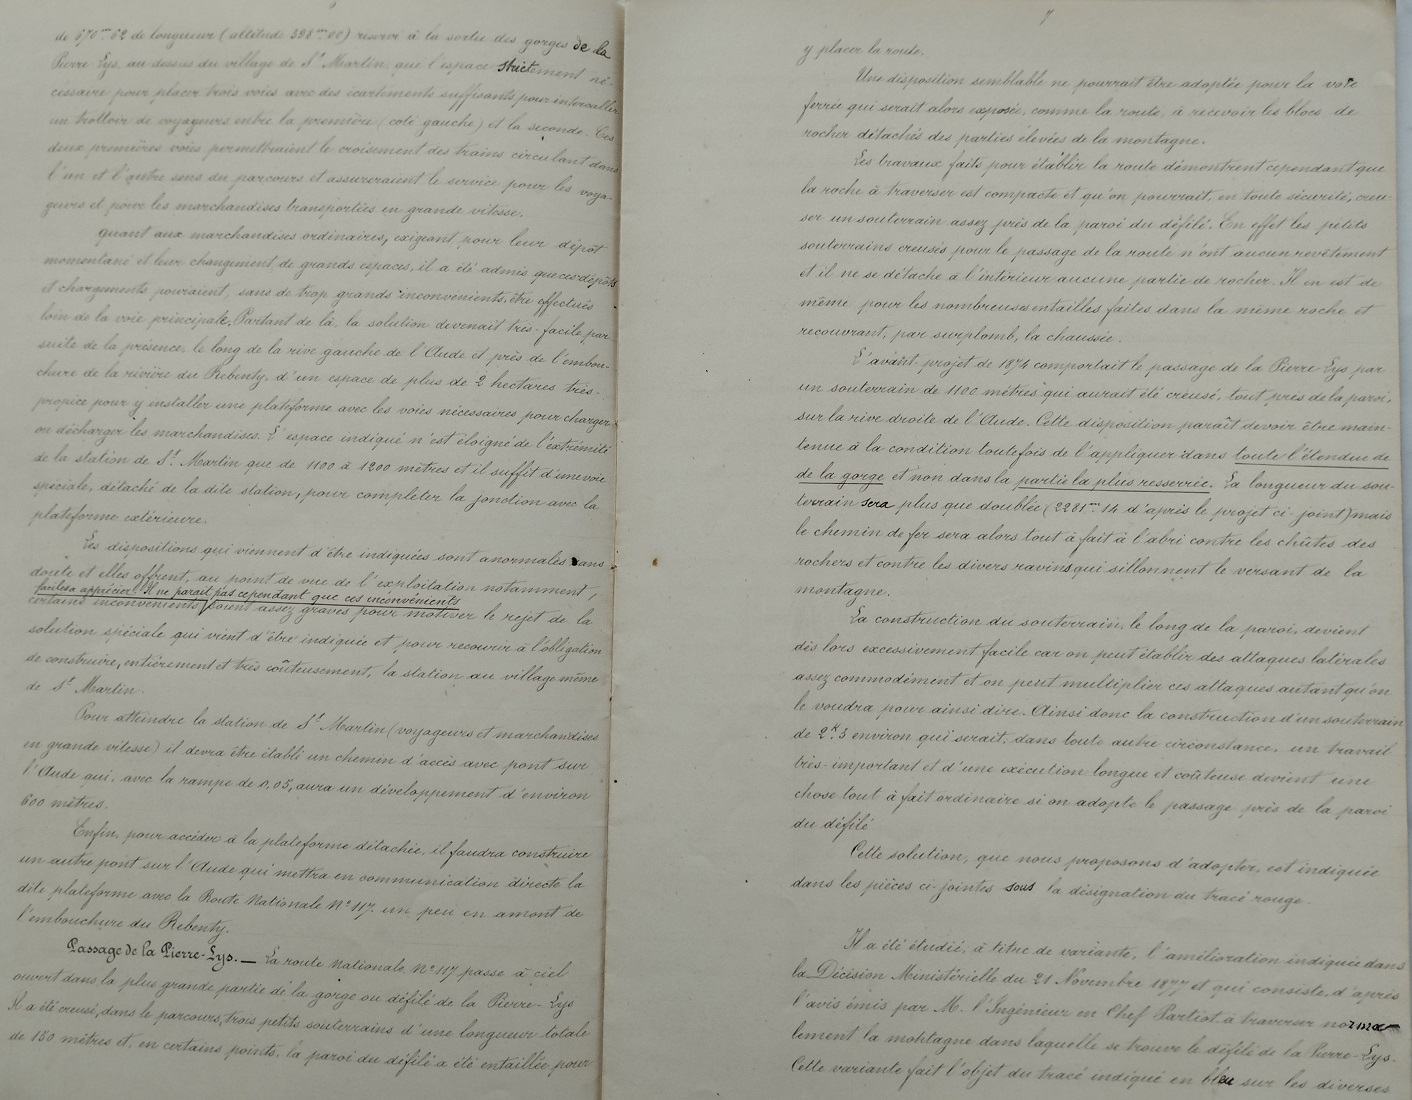 de 670m 62 de longueur (altitude 398m 00) réservé à la sortie des gorges de la
Pierre-Lys, au dessus du village de St Martin, que l'espace strictement né-
cessaire pour placer trois voies avec des écartements suffisants pour intercaller
un trottoir de voyageurs entre la première (coté gauche) et la seconde. Ces
deux premières voies permettraient le croisement des trains circulant dans
l'un et l'autre sens du parcours et assureraient le service pour les voya-
geurs et pour les marchandises transportées en grande vitesse.
quant aux marchandises ordinaires, exigeant pour leur dépôt
momentané et leur chargement de grands espaces, il a été admis que ces dépôts
et chargements pouvaient, sans de trop grands inconvénients, être effectués
loin de la voie principale. Partant de là, la solution devenait très-facile par
suite de la présence, le long de la rive gauche de l'Aude et près de l'embou-
chure de la rivière du Rebenty, d'un espace de plus de 2 hectares très-
propice pour y installer une plateforme avec les voies nécessaires pour charger
ou décharger les marchandises. L'espace indiqué n'est éloigné de l'extrémité
de la station de St Martin que de 1100 à 1200 mètres et il suffit d'une voie
spéciale, détaché de la dite station, pour compléter la jonction avec la
plateforme extérieure.
Les dispositions qui viennent d'être indiquées sont anormales sans
doute et elles offrent, au point de vue de l'exploitation notamment,
faciles à apprécier. Il ne parait pas cependant que ces inconvénients
certains inconvénients soient assez graves pour motiver le rejet de la
solution spéciale qui vient d'être indiquée et pour recourir à l'obligation
de construire, entièrement et très coûteusement, la station au village même
de St Martin.
Pour atteindre la station de St Martin (voyageurs et marchandises
en grande vitesse) il devra être établi un chemin d'accès avec pont sur
l'Aude qui, avec la rampe de 0,05, aura un développement d'environ
600 mètres.
Enfin, pour accéder à la plateforme détachée, il faudra construire
un autre pont sur l'Aude qui mettra en communication directe la
dite plateforme avec la Route Nationale No 117 un peu en amont de
l'embouchure du Rebenty.
Passage de la Pierre-Lys. — La route Nationale No 117 passe à ciel
ouvert dans la plus grande partie de la gorge ou défilé de la Pierre-Lys
Il a été creusé, dans le parcours, trois petits souterrains d'une longueur totale
de 150 mètres et, en certains points, la paroi du défilé a été entaillée pour
7
y placer la route.
Une disposition semblable ne pourrait être adoptée pour la voie
ferrée qui serait alors exposée, comme la route, à recevoir les blocs de
rocher détachés des parties élevées de la montagne.
Les travaux faits pour établir la route démontrent cependant que
la roche à traverser est compacte et qu'on pourrait, en toute sécurité, creu-
ser un souterrain assez près de la paroi du défilé. En effet les petits
souterrains creusés pour le passage de la route n'ont aucun revêtement
et il ne se détache à l'intérieur aucune partie de rocher. Il en est de
même pour les nombreuses entailles faites dans la même roche et
recouvrant, par surplomb, la chaussée.
L'avant-projet de 1874 comportait le passage de la Pierre-Lys par
un souterrain de 1100 mètres qui aurait été creusé, tout près de la paroi,
sur la rive droite de l'Aude. Cette disposition paraît devoir être main-
tenue à la condition toutefois de l'appliquer dans toute l'étendue de
de la gorge et non dans la partie la plus resserrée. La longueur du sou-
terrain sera plus que doublée (2281m 14 d'après le projet ci-joint) mais
le chemin de fer sera alors tout à fait à l'abri contre les chûtes des
rochers et contre les divers ravins qui sillonnent le versant de la
montagne.
La construction du souterrain, le long de la paroi, devient
dès lors excessivement facile car on peut établir des attaques latérales
assez commodément et on peut multiplier ces attaques autant qu'on
le voudra pour ainsi dire. Ainsi donc la construction d'un souterrain
de 2K.3 environ qui serait, dans toute autre circonstance, un travail
très-important et d'une exécution longue et coûteuse devient une
chose tout à fait ordinaire si on adopte le passage près de la paroi
du défilé
Cette solution, que nous proposons d'adopter, est indiquée
dans les pièces ci-jointes sous la désignation du tracé rouge.
Il a été étudié, à titre de variante, l'amélioration indiquée dans
la Décision Ministérielle du 21 Novembre 1877 et qui consiste, d'après
l'avis émis par M. l'Ingénieur en Chef Partiot à traverser norma-
lement la montagne dans laquelle se trouve le défilé de la Pierre-Lys.
Cette variante fait l'objet du tracé indiqué en bleu sur les diverses